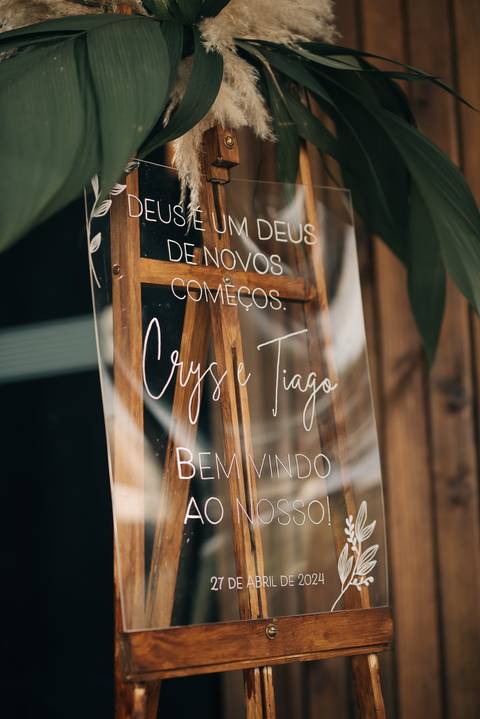 DEUS É UM DEUS
DE NOVOS
COMEÇOS.
Crys e Tiago
BEM VINDO
AO NOSSO!
27 DE ABRIL DE 2024